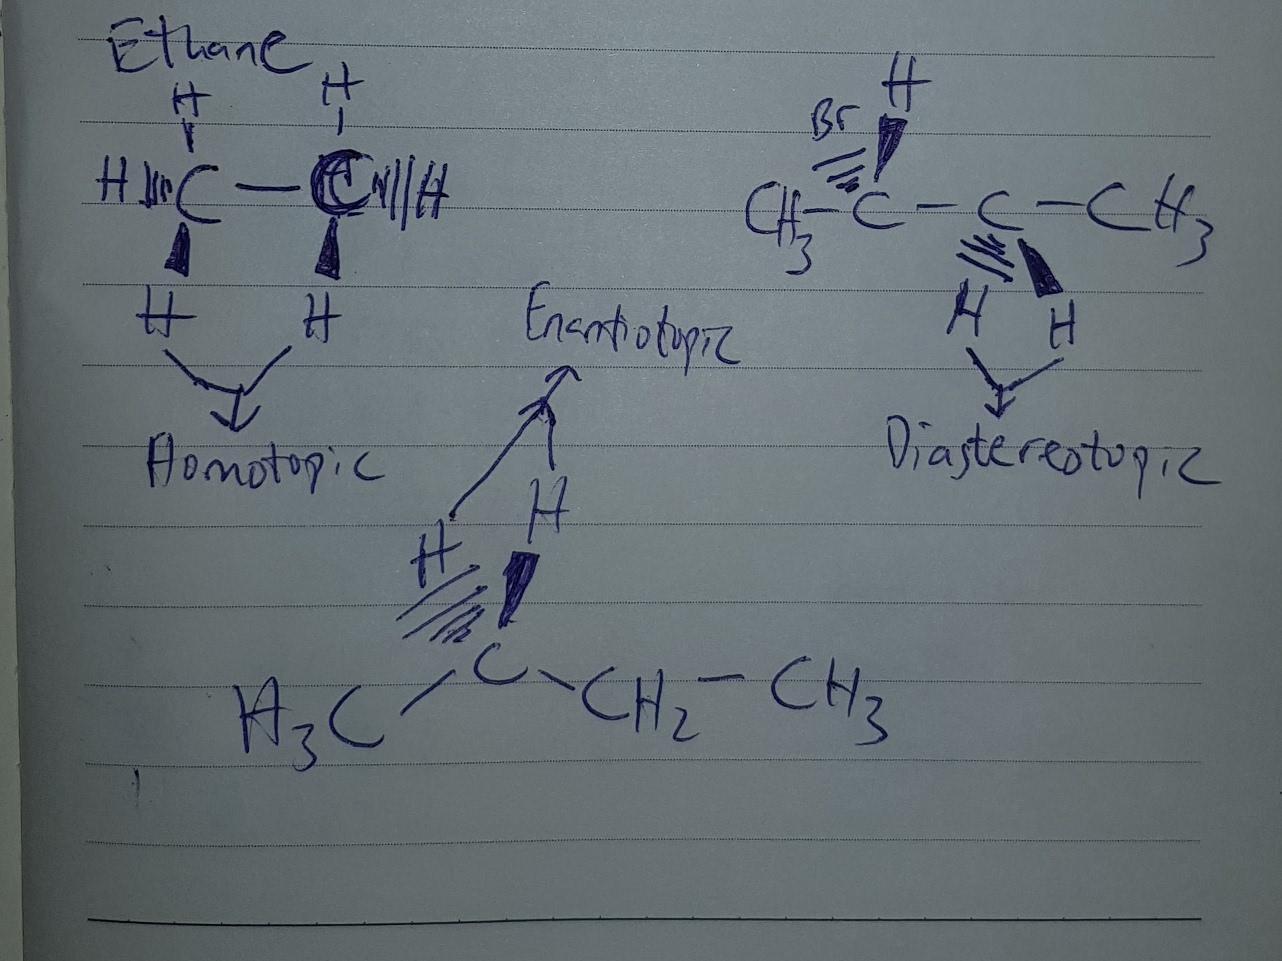 Ethane
H H
H C — C H
H H
Homotopic
Br H
CH3 - C - C - CH3
H H
Diastereotopic
Enantiotopic
H H
H3C - C - CH2 - CH3